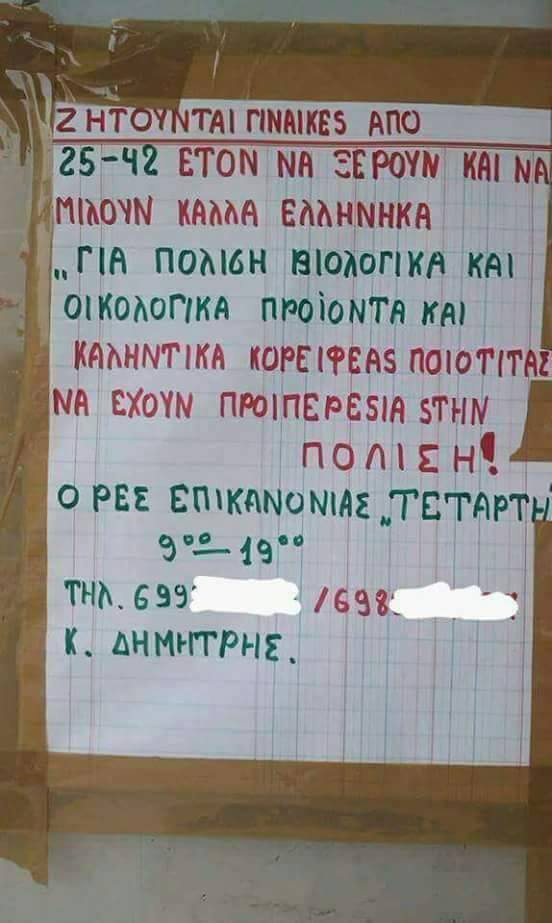 ΖΗΤΟΥΝΤΑΙ ΓΙΝΑΙΚΕS ΑΠΟ
25-42 ΕΤΟΝ ΝΑ ΞΕΡΟΥΝ ΚΑΙ ΝΑ
ΜΙΛΟΥΝ ΚΑΛΛΑ ΕΛΛΗΝΗΚΑ
„ΓΙΑ ΠΟΛΙΣΗ ΒΙΟΛΟΓΙΚΑ ΚΑΙ
ΟΙΚΟΛΟΓΙΚΑ ΠΡΟΪΟΝΤΑ ΚΑΙ
ΚΑΛΗΝΤΙΚΑ ΚΟΡΕΙΦΕΑS ΠΟΙΟΤΙΤΑΣ
ΝΑ ΕΧΟΥΝ ΠΡΟΙΠΕΡΕSΙΑ SΤΗΝ
ΠΟΛΙΣΗ!
Ο ΡΕΣ ΕΠΙΚΑΝΟΝΙΑΣ „ΤΕΤΑΡΤΗ
9⁰⁰-19⁰⁰
ΤΗΛ. 699 /698
Κ. ΔΗΜΗΤΡΗΣ.